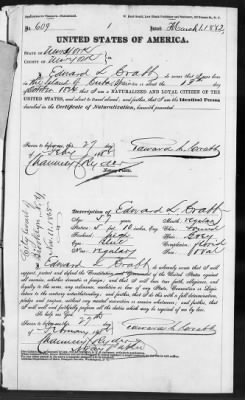 No. 609
1
March 1, 1882
UNITED STATES OF AMERICA.
STATE OF New York
COUNTY OF New York
I, Edward L. Crabb, do swear that I was born
in the Island of Cuba
that I am a NATURALIZED AND LOYAL CITIZEN OF THE
UNITED STATES, and about to travel abroad; and further, that I am the Identical Person
described in the Certificate of Naturalization, herewith presented
Sworn to before me, this 27 day
of Feby 1882
Edward L. Crabb
Notary Public.
City Court of
Brooklyn N.Y.
Description of Edward L. Crabb
Age:
Mouth: regular
Stature: 5 ft
Chin: round
Forehead:
Hair: Grey
Eyes: Blue
Complexion: florid
Nose: regular
Face: oval
I, Edward L. Crabb, do solemnly swear that I will
support, protect and defend the Constitution and Government of the United States against
all enemies, whether domestic or foreign; and that I will bear true faith, allegiance
and loyalty to the same, any ordinance, resolution or law of any State, Convention or Legis-
lature to the contrary notwithstanding; and further, that I do this with a full determination,
pledge and purpose, without any mental reservation or evasion whatsoever; and further, that
I will well and faithfully perform all the duties which may be required of me by law.
So help me God.
Sworn to before me, this 27th
day of February 1882
Edward L. Crabb
Notary Public